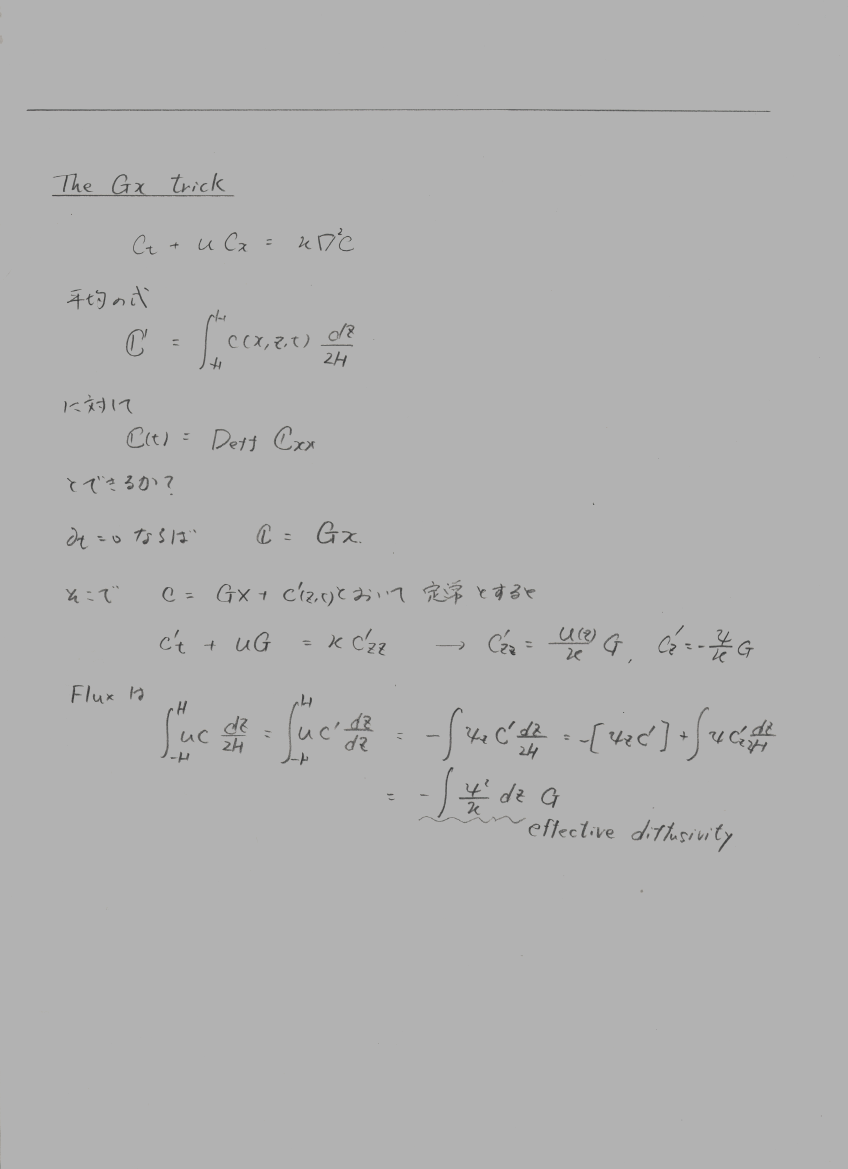 The Gx trick
Ct + u Cx = κ∇²C
平均の式
ℂ = ∫_{-H}^{H} c(x,z,t) dz/2H
に対して
ℂ(t) = Deff ℂxx
とできるか?
∂t = 0 ならば ℂ = Gx.
そこで C = Gx + C'(z,t) とおいて 定常 とすると
C't + uG = κ C'zz → C'zz = u(z)/κ G, C'z = -ψ/κ G
Flux は
∫_{-H}^{H} uc dz/2H = ∫_{-H}^{H} u c' dz/dz = -∫ ψz c' dz/2H = -[ψz c'] + ∫ ψ c'z dz/2H
= -∫ ψ²/κ dz G
effective diffusivity